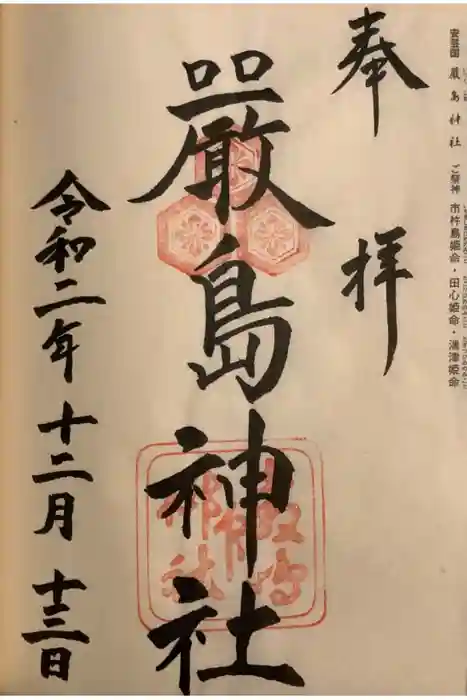 安芸国 厳島神社 ご祭神 市杵島姫命・田心姫命・湍津姫命
奉拝
厳島神社
令和二年 十二月 十三日